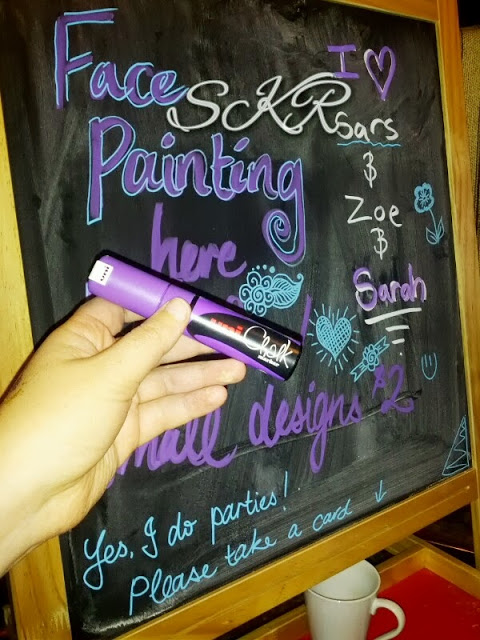 Face
SKR
Painting
here
small designs $2
Yes, I do parties!
Please take a card ↓
I ♡
Sars
&
Zoe
&
Sarah
uni
Chalk
marker